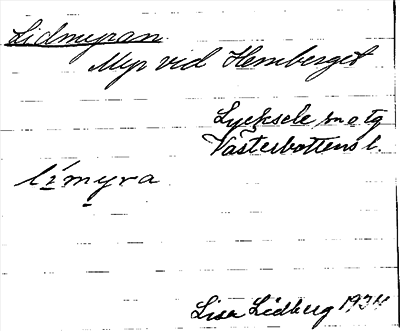 Lidmyran
Myr vid Hemberget
Lycksele sn o tg
Västerbottens l.
lìmyra
Lisa Lidberg 1934